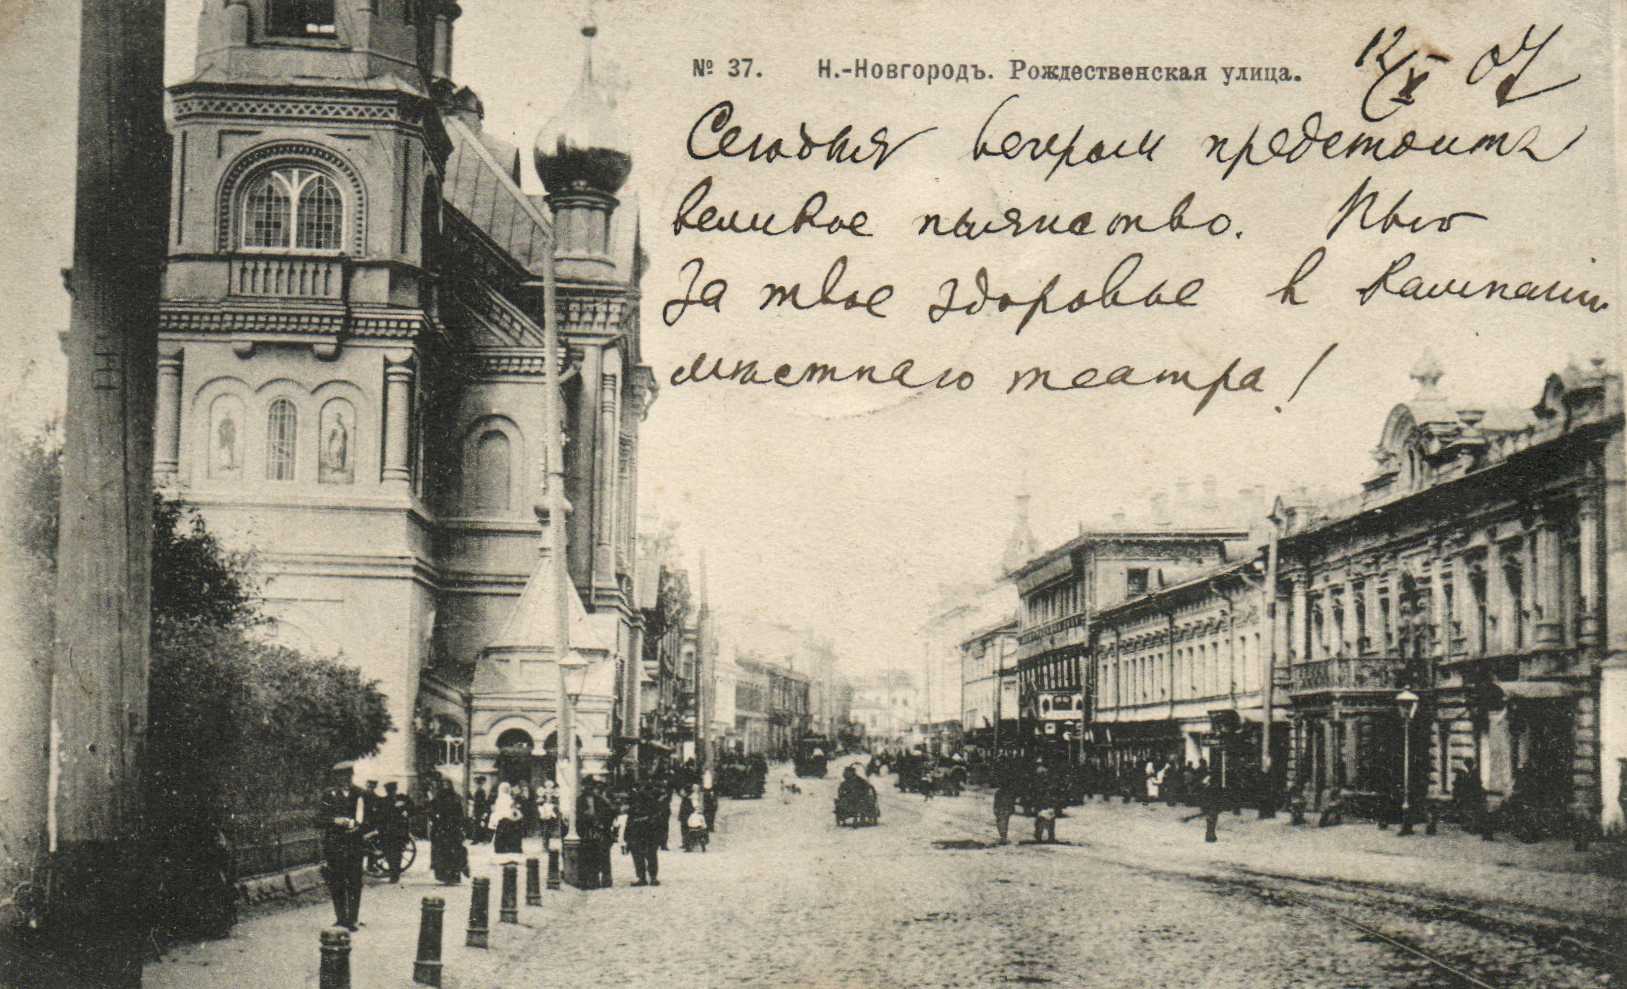 № 37. Н.-Новгородъ. Рождественская улица.
12/X 07
Сегодня вечером предстоитъ
великое пьянство. Пью
за твое здоровье в кампании
местнаго театра!